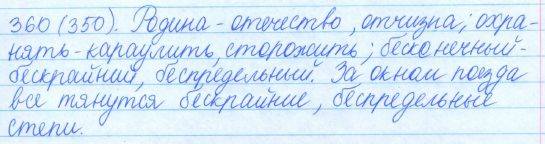 360 (350). Родина - отечество, отчизна; охра-
нять - караулить, сторожить; бесконечный-
бескрайний, беспредельный. За окном поезда
все тянутся бескрайние, беспредельные
степи.